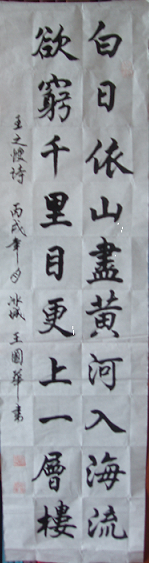 白日依山盡黄河入海流
欲窮千里目更上一層樓
王之煥詩 丙戌年 王國華書